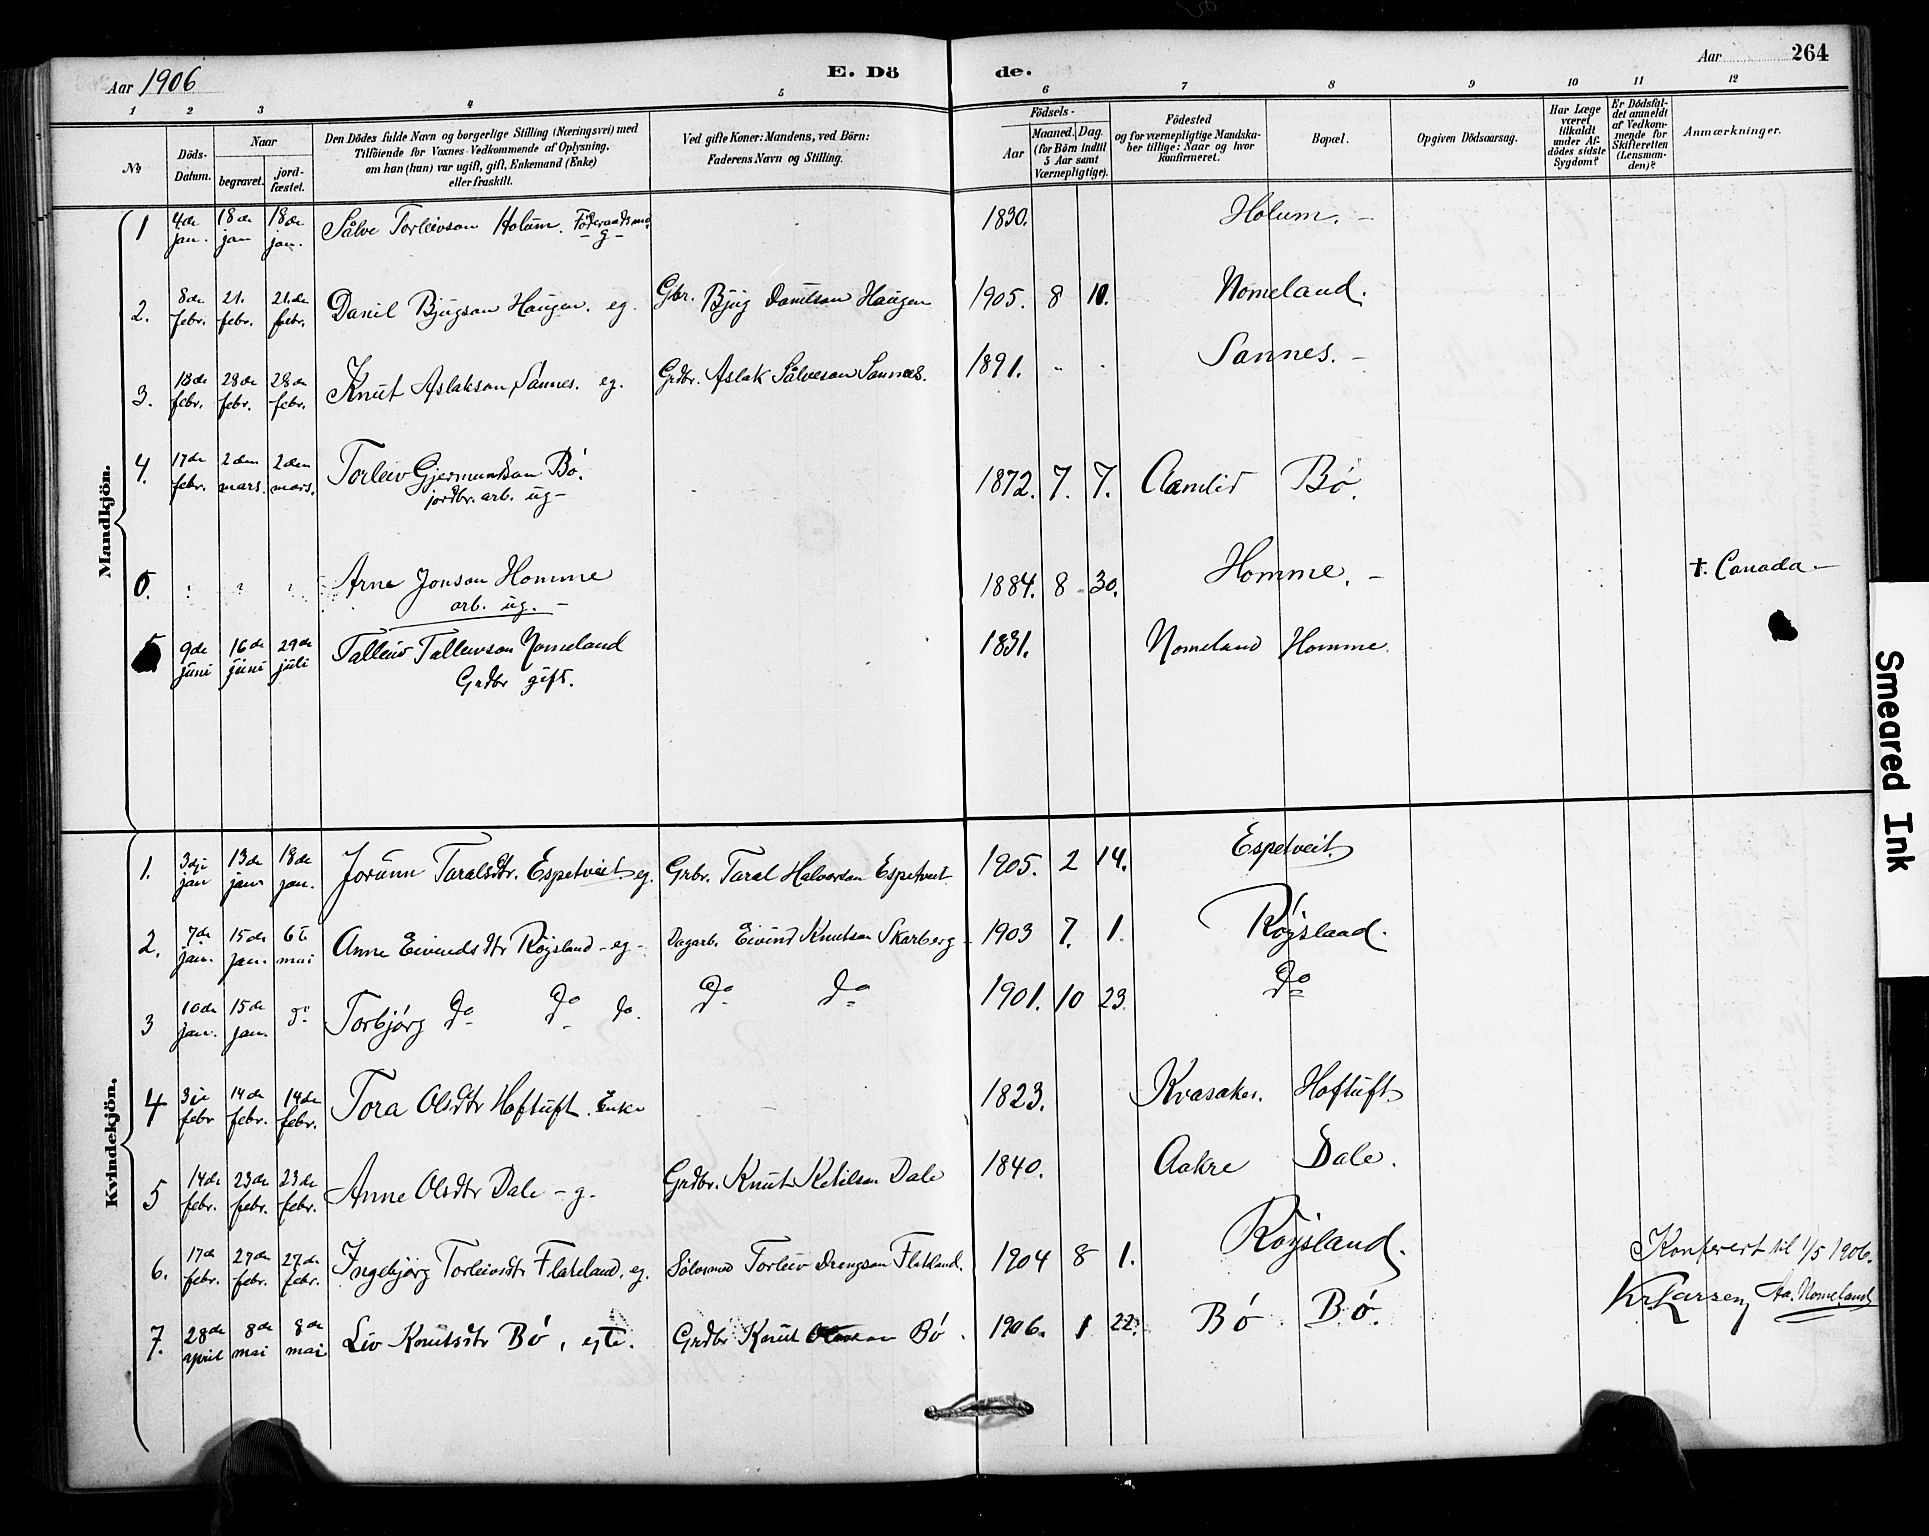 Aar 1906
E. Dö
de.
Aar
264
1 2 3 4 5 6 7 8 9 10 11 12
No
Döds-Datum.
Naar
begravet.
jordfæstet.
Den Dödes fulde Navn og borgerlige Stilling (Næringsvei) med
Tilföiende for Voxnes Vedkommende af Oplysning,
om han (hun) var ugift, gift, Enkemand (Enke)
eller fraskilt.
Ved gifte Koner: Mandens, ved Börn:
Faderens Navn og Stilling.
Födsels-
Aar
Maaned. Dag.
(for Börn indtil
5 Aar samt
Værnepligtige).
Födested
og for værnepligtige Mandskaber tillige: Naar og hvor
konfirmeret.
Bopæl.
Opgiven Dödsaarsag.
Har Læge
været
tilkaldt
under Afdödes sidste
Sygdom?
Er Dödsfaldet anmeldt
af Vedkommende for
Skifteretten
(Lensmanden)?
Anmærkninger.
Mandkjön.
1 4de jan. 18de jan 18de jan. Sálve Torleivson Holum. Föderaadsmd. – g – 1830. Holum. –
2. 8de febr. 21. febr. 21.de febr. Daniel Bjugson Haugen. eg. Gbr. Bjug Danielson Haugen 1905. 8 10. Nomeland.
3. 18de febr. 28de febr. 28de febr. Knut Aslakson Sannes. eg. Grdbr. Aslak Sálveson Sannes. 1891. Sannes. –
4. 17de febr. 2den mars. 2den mars. Torleiv Gjermundson Bö. jordbr. arb. ug – 1872. 7. 7. Aamlid Bö.
0. Arne Jonson Homme arb. ug. – 1884. 8 30. Homme. – †. Canada –
5 9de juni 16de juni 29de juli Talleiv Talleivson Nomeland Grdbr gift. 1831. Nomeland Homme.
Kvindekjön.
1. 3dje jan 13de jan 18de jan. Jorunn Taralsdtr. Espetveit. eg. Grbr. Taral Halvorson Espetveit 1905. 2 14. Espetveit
2. 7de jan. 15de jan. 6te mai Anne Eivindsdtr Röysland – eg – Dagarb. Eivind Knutson Skarberg – 1903 7. 1. Röysland.
3 10de jan. 15de jan. do Torbjörg do do do. do do 1901. 10 23. do
4 3je febr 14de febr. 14de febr. Tora Olsdtr Hoftuft. Enke 1823. Kvasaker. Hoftuft
5 14de febr. 23de febr. 23de febr. Anne Olsdtr Dale – g. Grdbr. Knut Ketilson Dale 1840. Aakre Dale.
6. 17de febr. 27de febr. 27.de febr. Ingebjörg Torleivsdtr Flateland. eg. Torleiv Drengson Flateland. 1904 8 1. Röysland. Konferert til 1/5 1906.
Kr Larsen Aa. Nomeland
7. 28de april 8de mai 8de mai Liv Knutsdtr Bö, egte. Grdbr Knut Bö. 1906. 1 22. Bö Bö.
Smeared Ink